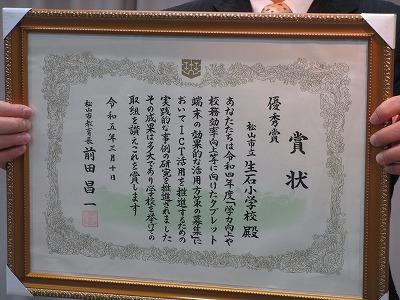 賞状
優秀賞
松山市立 生石小学校 殿
あなたたちは令和四年度「学力向上や
校務効率向上等に向けたタブレット
端末の効果的な活用方策の募集」に
おいてICT活用を推進するための
実践的な事例の研究を推進されました
その成果は多大であり学校を挙げての
取組を讃えこれを賞します
令和五年三月十日
松山市教育長 前田昌一